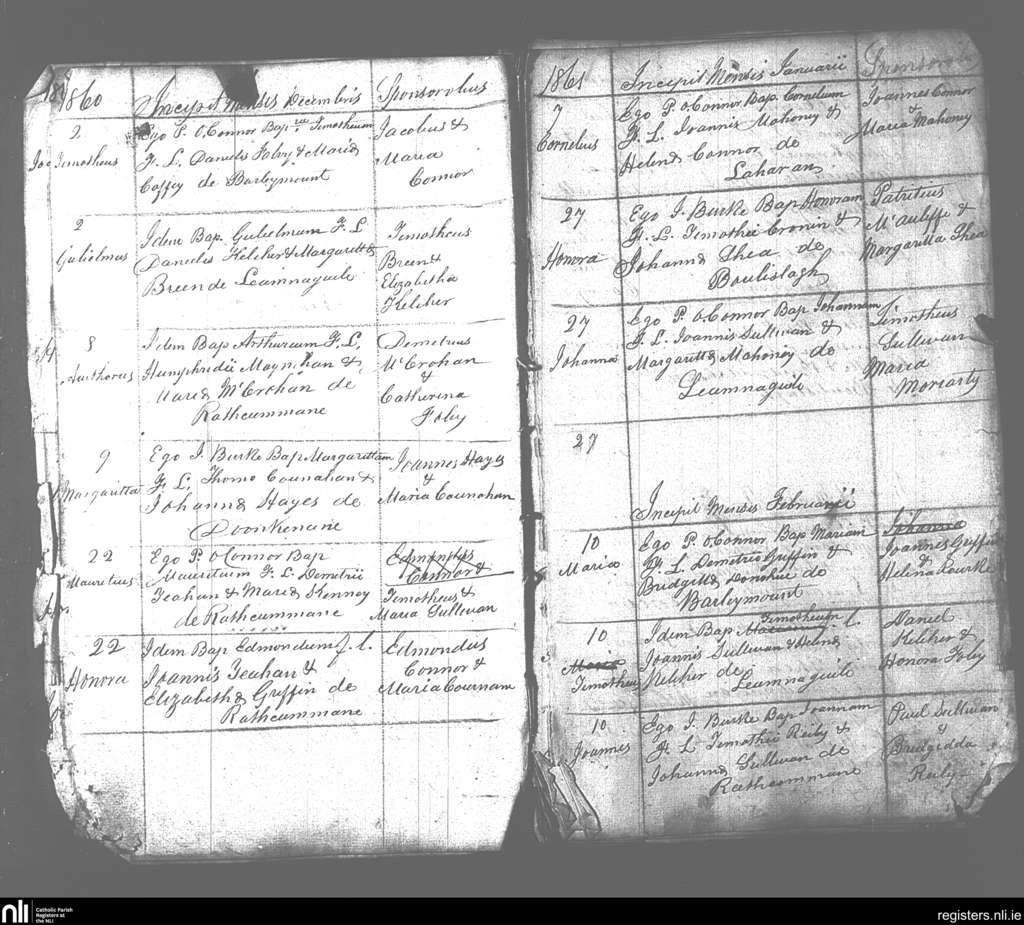 1860
Incipit Mensis Decembris
Sponsoribus
2
Timotheus
Ego P. O'Connor Bap Timotheum
F. L. Danielis Foley & Maria
Coffey de Barleymount
Jacobus &
Maria
Connor
2
Gulielmus
Idem Bap. Gulielmum F. L
Danieles Keliher & Margaritta
Breen de Leamnaguile
Timotheus
Breen &
Elizabetha
Keliher
8
Idem Bap Arthurum F. L.
Humphridii Moynihan &
Maria McCrohan de
Rathcummane
Demetrius
McCrohan
&
Catherina
Foley
9
Margaritta
Ego J. Burke Bap Margarittam
F. L. Thomo Counahan &
Johanna Hayes de
Doonkenane
Joannes Hayes
&
Maria Counahan
22
Mauritius
Ego P. O Connor Bap
Mauritium F. L. Demetrii
Teahan & Maria Kenney
de Rathcummane
Edmondus
Connor &
Timotheus &
Maria Sullivan
22
Honora
Idem Bap Edmondum f. l.
Joannis Teahan &
Elizabetha Griffin de
Rathcummane
Edmondus
Connor &
Maria Cournam
1861
Incipit Mensis Januarii
7
Cornelius
Ego P. O Connor Bap. Cornelium
F. L. Joannis Mahoney &
Helena Connor de
Laharan
Joannes Connor
&
Maria Mahoney
27
Honora
Ego J. Burke Bap Honoram
F. L. Timothei Cronin &
Johanna Shea de
Boulislagh
Patritius
McAuliffe &
Margaritta Shea
27
Johanna
Ego P. O. Connor Bap Johannam
F. L. Joannis Sullivan &
Margaritta Mahoney de
Leamnaguile
Timotheus
Sullivan
Maria
Moriarty
27
Incipit Mensis Februarii
10
Maria
Ego P. O Connor Bap Mariam
F. L Demetrio Griffin &
Bridgitta Donohue de
Barleymount
Johanna
Joannes Griffin
&
Helena Rourke
10
Maria
Timotheus
Timotheum
Idem Bap f. l.
Joannis Sullivan & Helena
Keliher de
Leamnaguile
Daniel
Keliher &
Honora Foley
10
Joannes
Ego J. Burke Bap Joannam
F. L Timothei Reily &
Johanna Sullivan de
Rathcommane
Paul Sullivan
&
Bridgidda
Reily
nli
Catholic Parish
Registers at
the NLI
registers.nli.ie